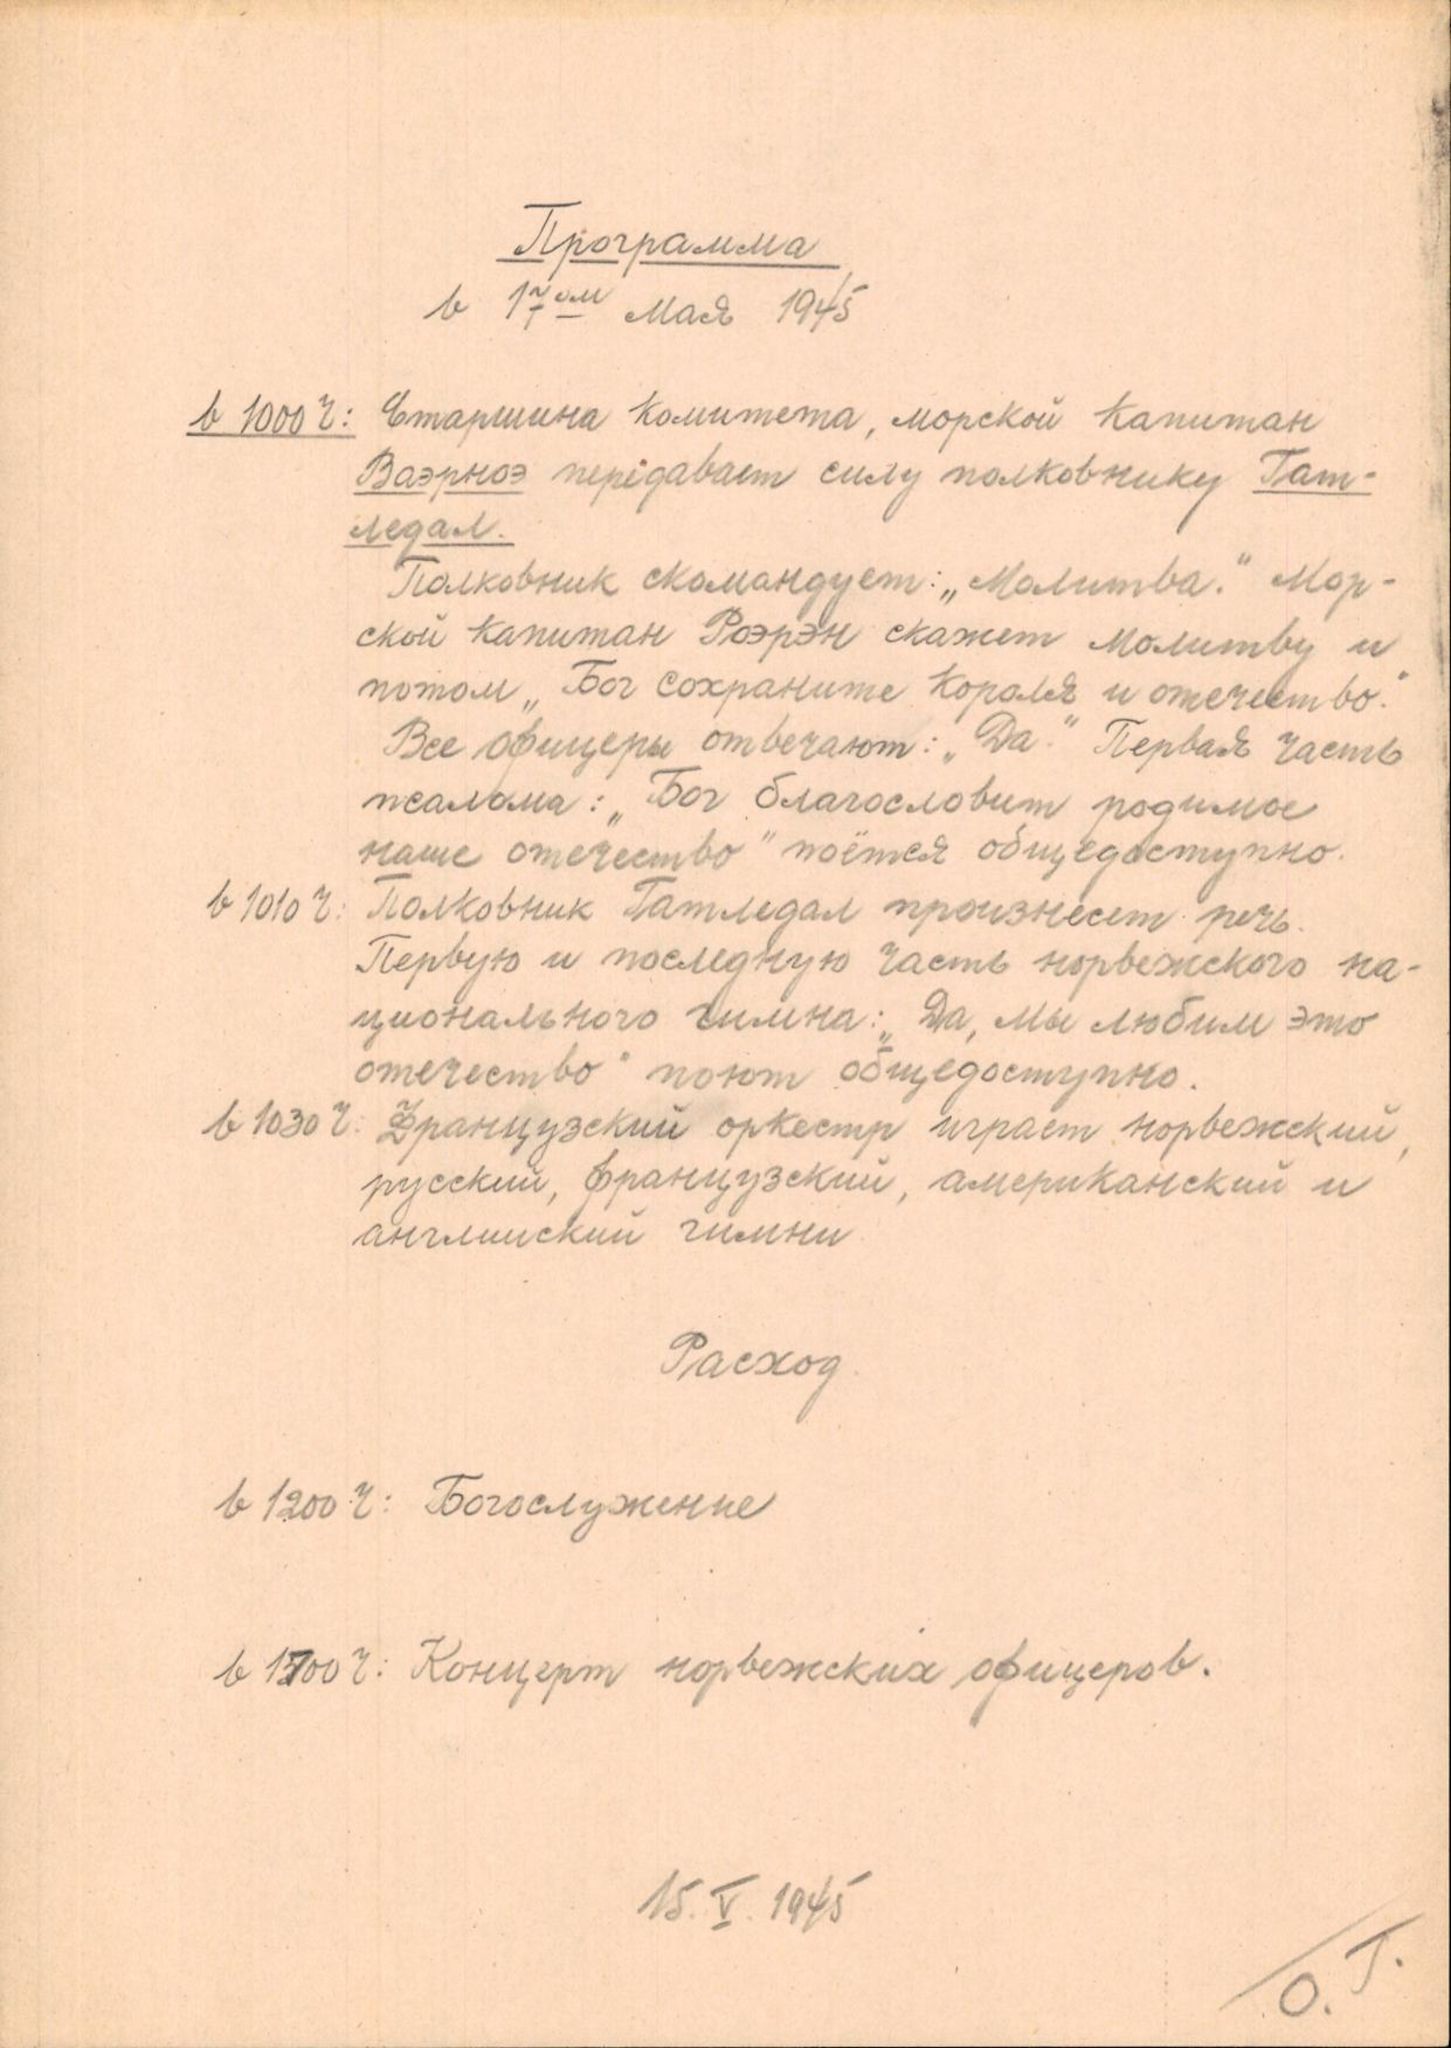 Программа
в 17ом мая 1945
в 1000 ч: Старшина комитета, морской капитан
Ваэрноэ перiдавает силу полковнику Гат-
ледал.
Полковник скомандует: „Молитва." Мор-
ской капитан Роэрэн скажет молитву и
потом „Бог сохраните короля и отечество."
Все офицеры отвечают: „Да." Первая часть
псалома: „Бог благословит родимое
наше отечество" поётся общедоступно.
в 1010 ч: Полковник Гатледал произнесет речь.
Первую и последную часть норвежского на-
ционального гимна: „Да, мы любим это
отечество" поют общедоступно.
в 1030 ч: Французский оркестр играет норвежский,
русский, французский, американский и
англииский гимни
Расход
в 1200 ч: Богослужение
в 1700 ч: Концерт норвежских офицеров.
15. V. 1945
О. Г.